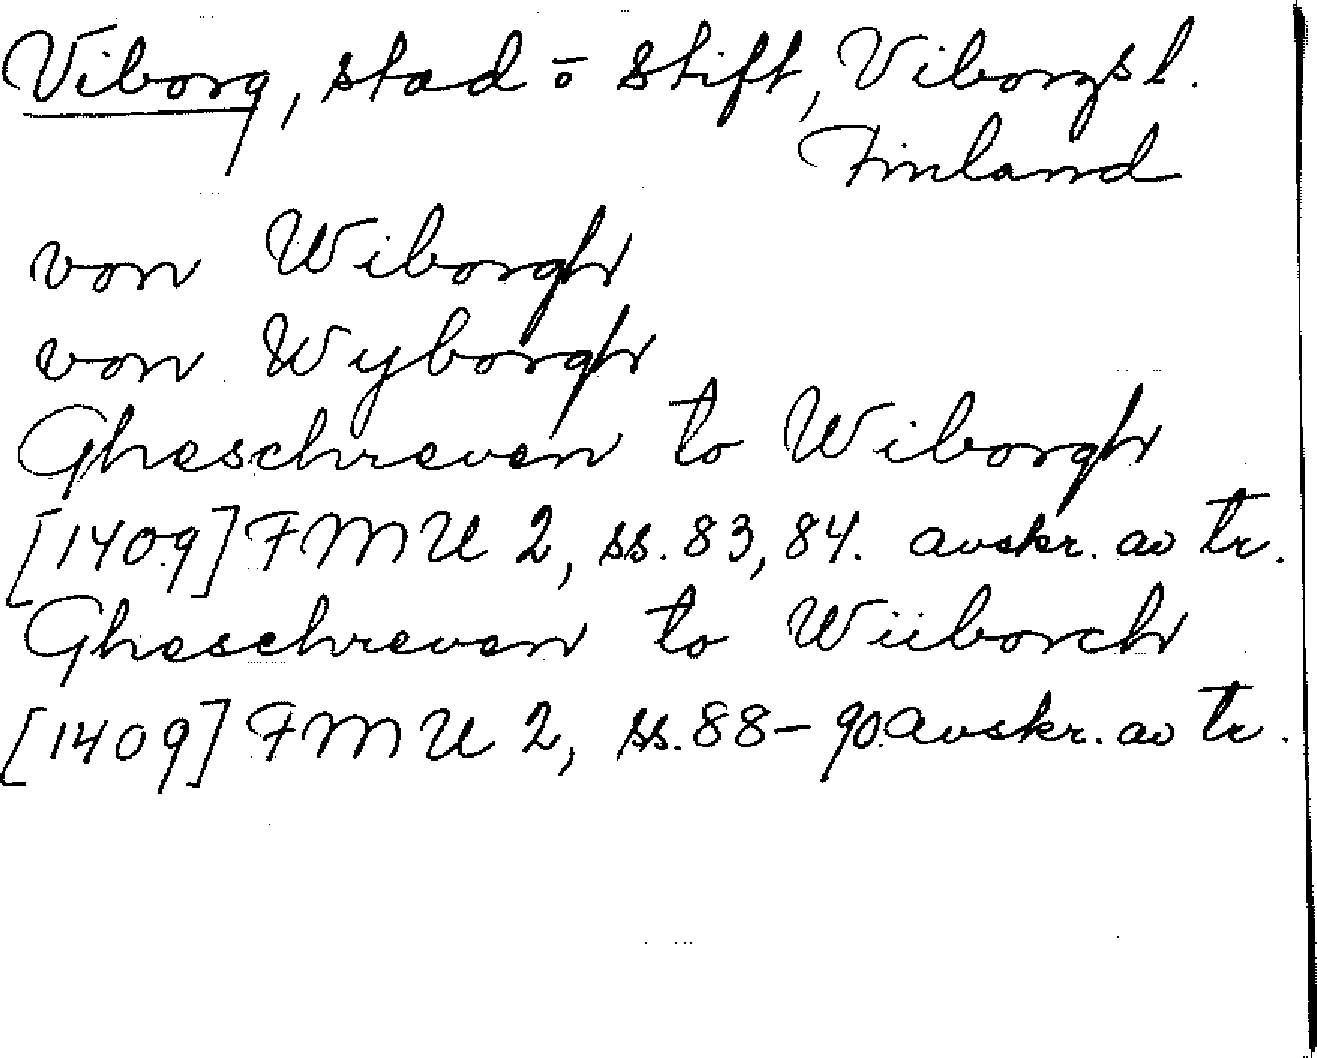 Viborg, stad o stift, Viborgs l.
Finland
von Wiborgh
von Wyborgh
Gheschreven to Wiborgh
[1409] FMU 2, ss. 83, 84. avskr. av tr.
Gheschreven to Wiiborch
[1409] FMU 2, ss. 88-90. avskr. av tr.